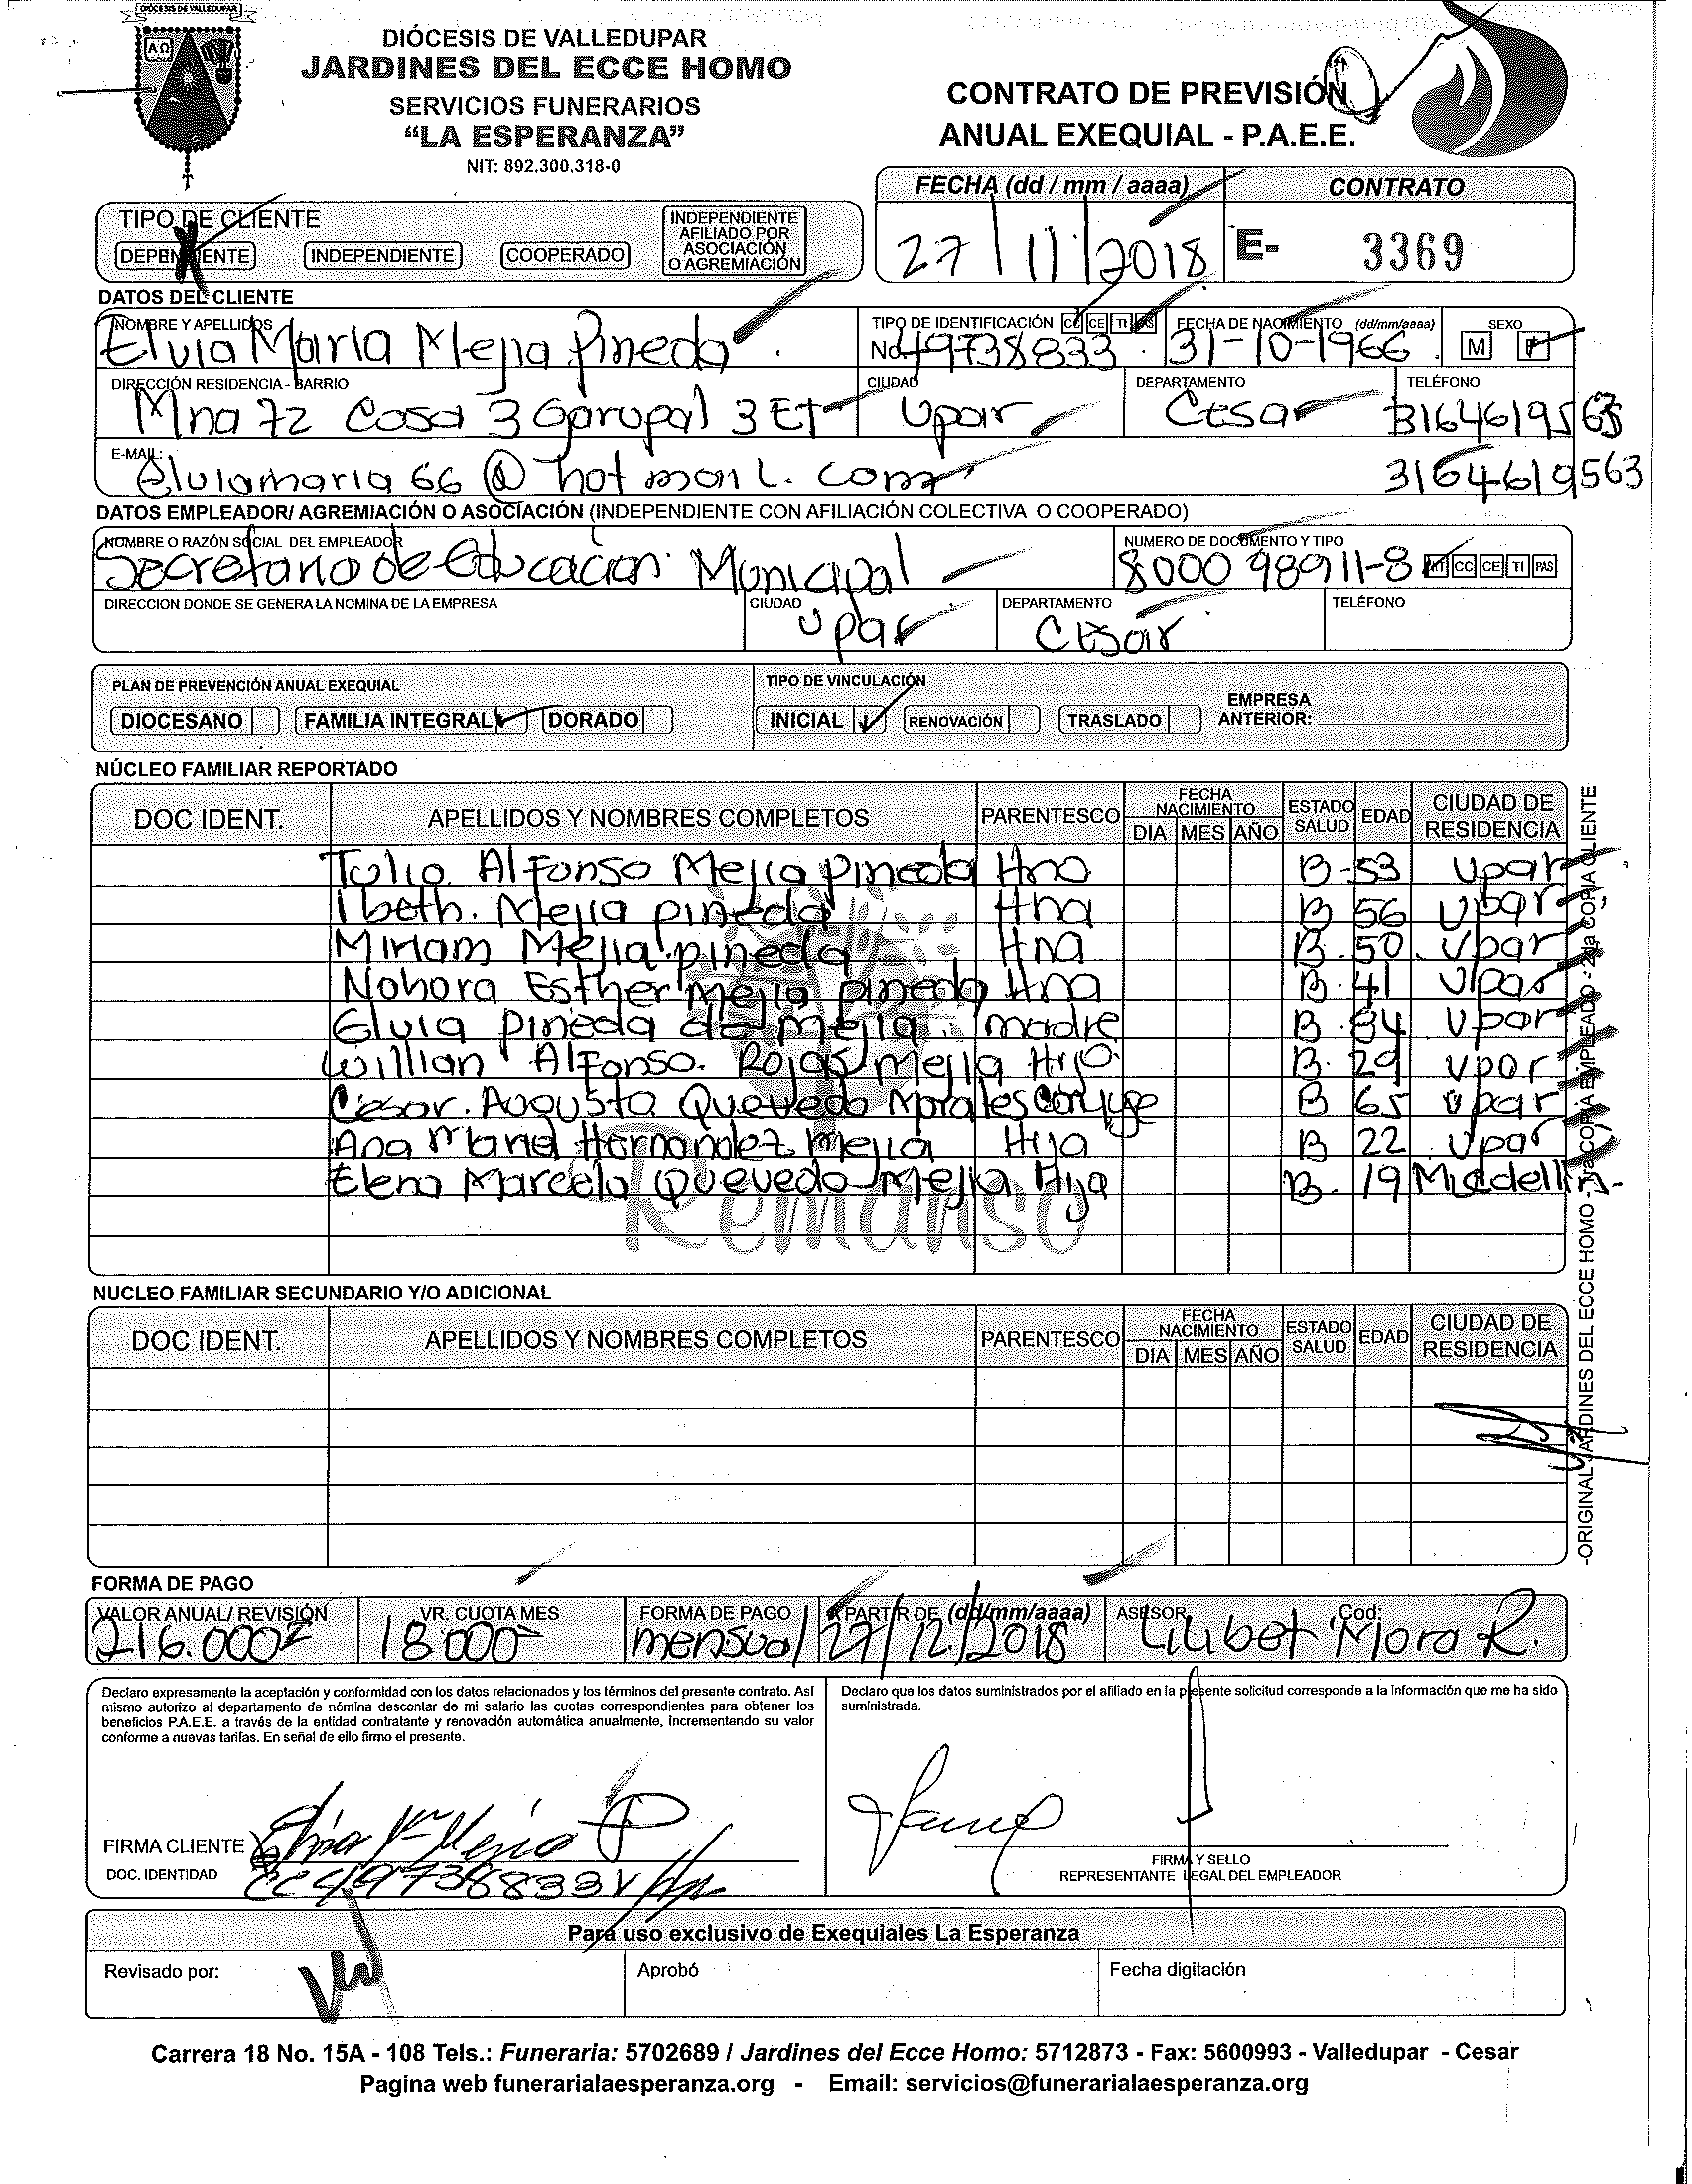 DIÓCESIS DE VALLEDUPAR
DIÓCESIS DE VALLEDUPAR
JARDINES DEL ECCE HOMO
SERVICIOS FUNERARIOS
“LA ESPERANZA”
NIT: 892.300.318-0
CONTRATO DE PREVISIÓN
ANUAL EXEQUIAL - P.A.E.E.
FECHA (dd / mm / aaaa) CONTRATO
27/11/2018 E- 3369
TIPO DE CLIENTE
DEPENDIENTE INDEPENDIENTE COOPERADO INDEPENDIENTE AFILIADO POR ASOCIACIÓN O AGREMIACIÓN
DATOS DEL CLIENTE
NOMBRE Y APELLIDOS TIPO DE IDENTIFICACIÓN CC CE TI PAS FECHA DE NACIMIENTO (dd/mm/aaaa) SEXO
Elvia Maria Mejia Pineda No 49738833 31-10-1966 M F
DIRECCIÓN RESIDENCIA - BARRIO CIUDAD DEPARTAMENTO TELÉFONO
Mna 72 Casa 3 Garupal 3 ET Upar Cesar 3164619563
E-MAIL:
elviamaria66@hotmail.com 3164619563
DATOS EMPLEADOR/ AGREMIACIÓN O ASOCIACIÓN (INDEPENDIENTE CON AFILIACIÓN COLECTIVA O COOPERADO)
NOMBRE O RAZÓN SOCIAL DEL EMPLEADOR NUMERO DE DOCUMENTO Y TIPO
Secretario de Educacion Municipal 800098911-8 NIT CC CE TI PAS
DIRECCION DONDE SE GENERA LA NOMINA DE LA EMPRESA CIUDAD DEPARTAMENTO TELÉFONO
Upar Cesar
PLAN DE PREVENCIÓN ANUAL EXEQUIAL TIPO DE VINCULACIÓN
DIOCESANO FAMILIA INTEGRAL DORADO INICIAL RENOVACIÓN TRASLADO EMPRESA ANTERIOR:
NÚCLEO FAMILIAR REPORTADO
DOC IDENT. APELLIDOS Y NOMBRES COMPLETOS PARENTESCO FECHA NACIMIENTO DIA MES AÑO ESTADO SALUD EDAD CIUDAD DE RESIDENCIA
Tulio Alfonso Mejia Pineda Hno B-53 Upar
Ibeth. Mejia pineda Hna B 56 Upar
Miriam Mejia pineda Hna B. 50. Upar
Nohora Esther Mejia pineda Hna B. 41 Upar
Elvia Pineda de Mejia. madre B. 84 Upar
Willian Alfonso. Rojas Mejia Hijo B. 29 Upar
Cesar. Augusto Quevedo Morales Conyuge B 65 Upar
Ana Maria Hernandez Mejia Hija B 22 Upar
Elena Marcela Quevedo Mejia Hija B. 19 Meddellin
Remanso
NUCLEO FAMILIAR SECUNDARIO Y/O ADICIONAL
DOC IDENT. APELLIDOS Y NOMBRES COMPLETOS PARENTESCO FECHA NACIMIENTO DIA MES AÑO ESTADO SALUD EDAD CIUDAD DE RESIDENCIA
-ORIGINAL JARDINES DEL ECCE HOMO - 1ra COPIA EMPLEADO - 2da COPIA CLIENTE
FORMA DE PAGO
VALOR ANUAL/ REVISIÓN VR. CUOTA MES FORMA DE PAGO A PARTIR DE (dd/mm/aaaa) ASESOR Cod:
216.000 18.000 mensual 27/12/2018 Lilibet Mora R.
Declaro expresamente la aceptación y conformidad con los datos relacionados y los términos del presente contrato. Así
mismo autorizo al departamento de nómina descontar de mi salario las cuotas correspondientes para obtener los
beneficios P.A.E.E. a través de la entidad contratante y renovación automática anualmente, incrementando su valor
conforme a nuevas tarifas. En señal de ello firmo el presente.
Declaro que los datos suministrados por el afiliado en la presente solicitud corresponde a la información que me ha sido
suministrada.
FIRMA CLIENTE Elvia Ma Mejia P
DOC. IDENTIDAD CC 49738833 V/par
FIRMA Y SELLO
REPRESENTANTE LEGAL DEL EMPLEADOR
Para uso exclusivo de Exequiales La Esperanza
Revisado por: Aprobó Fecha digitación
Carrera 18 No. 15A - 108 Tels.: Funeraria: 5702689 / Jardines del Ecce Homo: 5712873 - Fax: 5600993 - Valledupar - Cesar
Pagina web funerarialaesperanza.org - Email: servicios@funerarialaesperanza.org